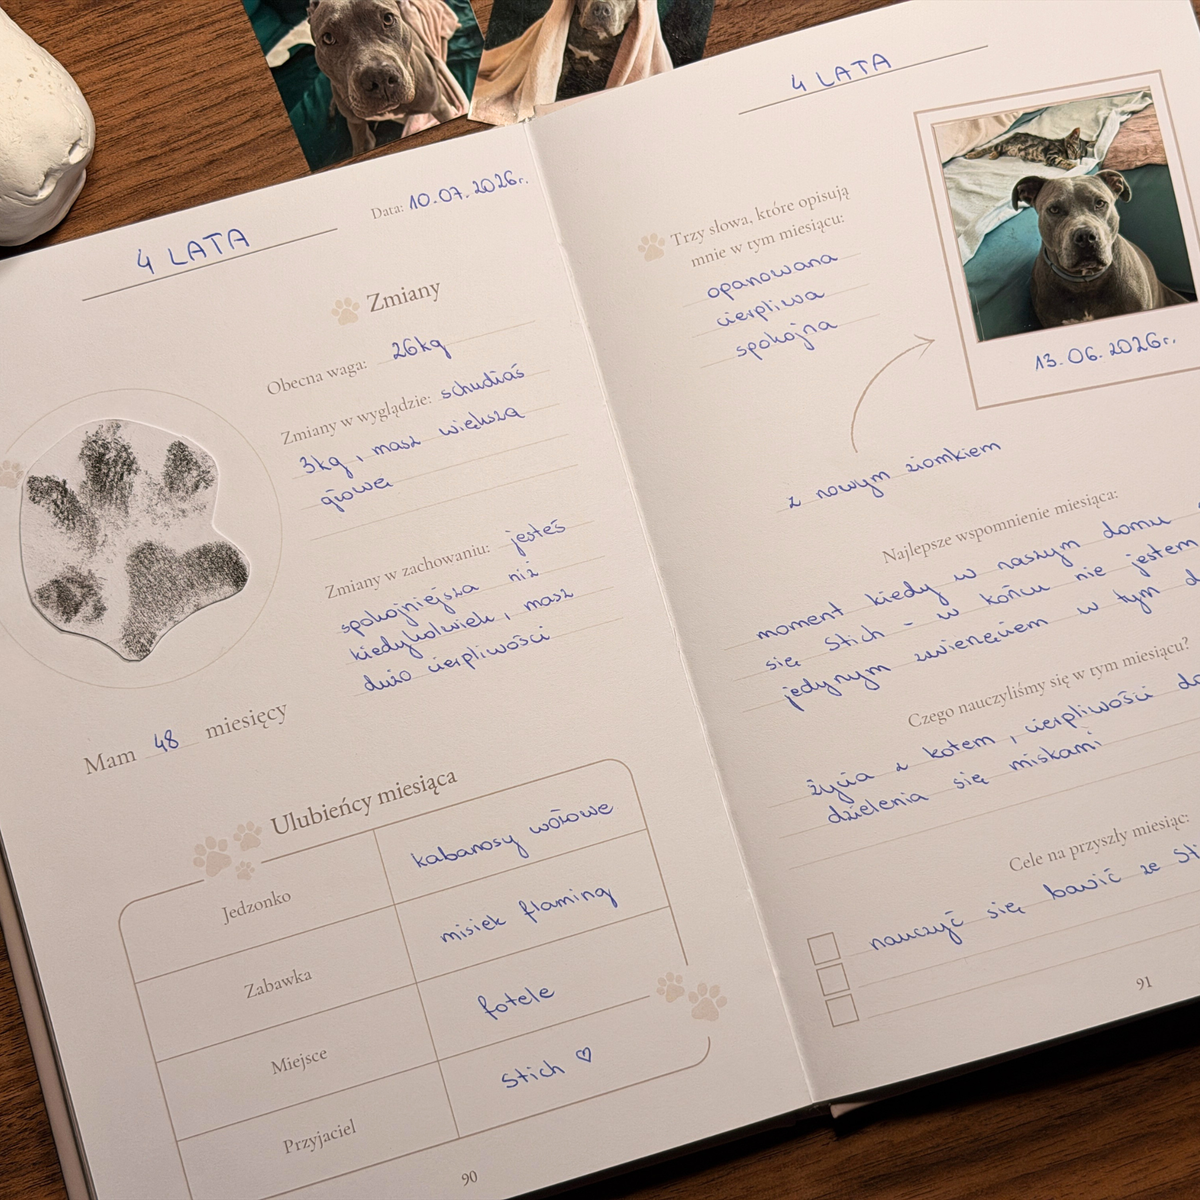 4 LATA
Data: 10.07.2026r.
Zmiany
Obecna waga: 26kg
Zmiany w wyglądzie: schudłaś
3kg, masz większą
głowę
Zmiany w zachowaniu: jesteś
spokojniejsza niż
kiedykolwiek, masz
dużo cierpliwości
Mam 48 miesięcy
Ulubieńcy miesiąca
Jedzonko kabanosy wołowe
Zabawka misiek flaming
Miejsce fotele
Przyjaciel Stich ♡
90
4 LATA
Trzy słowa, które opisują
mnie w tym miesiącu:
opanowana
cierpliwa
spokojna
13.06.2026r.
z nowym ziomkiem
Najlepsze wspomnienie miesiąca:
moment kiedy w naszym domu
się Stich - w końcu nie jestem
jedynym zwierzęciem w tym
Czego nauczyliśmy się w tym miesiącu?
życia z kotem, cierpliwości do
dzielenia się miskami
Cele na przyszły miesiąc:
nauczyć się bawić ze
91